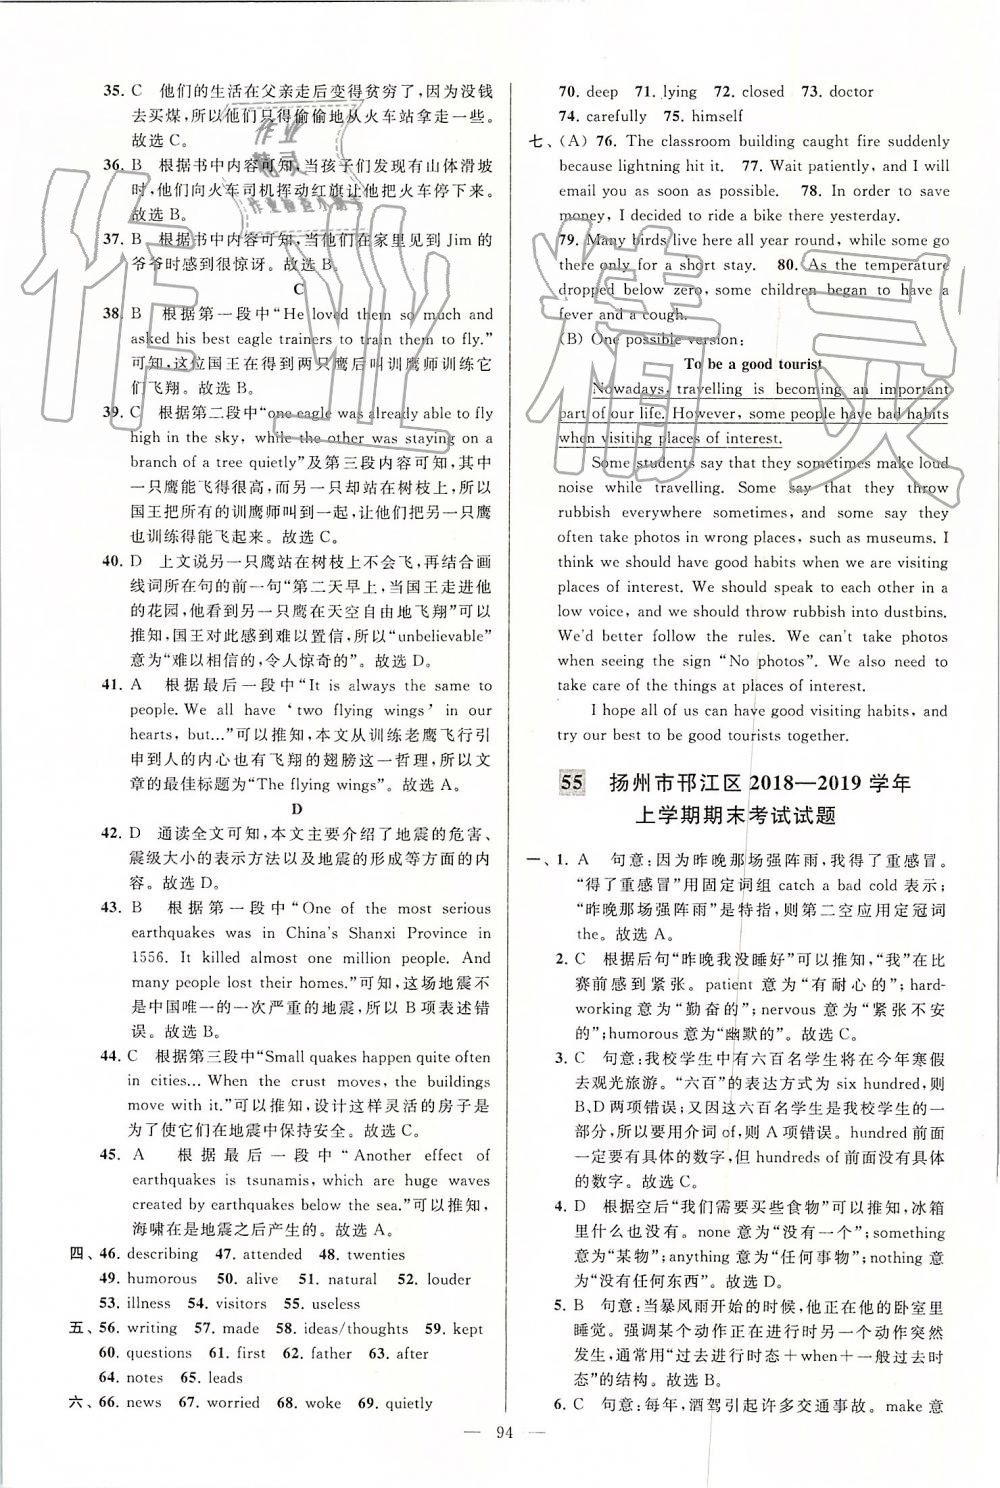 35. C 他们的生活在父亲走后变得贫穷了,因为没钱
去买煤,所以他们只得偷偷地从火车站拿走一些。
故选 C。
36. B 根据书中内容可知,当孩子们发现有山体滑坡
时,他们向火车司机挥动红旗让他把火车停下来。
故选 B。
37. B 根据书中内容可知,当他们在家里见到 Jim 的
爷爷时感到很惊讶。故选 B。
C
38. B 根据第一段中“He loved them so much and
asked his best eagle trainers to train them to fly.”
可知,这位国王在得到两只鹰后叫训鹰师训练它
们飞翔。故选 B。
39. C 根据第二段中“one eagle was already able to fly
high in the sky, while the other was staying on a
branch of a tree quietly”及第三段内容可知,其中
一只鹰能飞得很高,而另一只却站在树枝上,所以
国王把所有的训鹰师叫到一起,让他们把另一只鹰
也训练得能飞起来。故选 C。
40. D 上文说另一只鹰站在树枝上不会飞,再结合画
线词所在句的前一句“第二天早上,当国王走进他
的花园,他看到另一只鹰在天空自由地飞翔”可以
推知,国王对此感到难以置信,所以“unbelievable”
意为“难以相信的,令人惊奇的”。故选 D。
41. A 根据最后一段中“It is always the same to
people. We all have ‘two flying wings’ in our
hearts, but...”可以推知,本文从训练老鹰飞行引
申到人的内心也有飞翔的翅膀这一哲理,所以本
文章的最佳标题为“The flying wings”。故选 A。
D
42. D 通读全文可知,本文主要介绍了地震的危害、
震级大小的表示方法以及地震的形成等方面的内
容。故选 D。
43. B 根据第一段中“One of the most serious
earthquakes was in China's Shanxi Province in
1556. It killed almost one million people. And
many people lost their homes.”可知,这场地震不
是中国唯一的一次严重的地震,所以 B 项表述错
误。故选 B。
44. C 根据第三段中“Small quakes happen quite often
in cities... When the crust moves, the buildings
move with it.”可以推知,设计这样灵活的房子是
为了使它们在地震中保持安全。故选 C。
45. A 根据最后一段中“Another effect of
earthquakes is tsunamis, which are huge waves
created by earthquakes below the sea.”可以推知,
海啸是在地震之后产生的。故选 A。
四、46. describing 47. attended 48. twenties
49. humorous 50. alive 51. natural 52. louder
53. illness 54. visitors 55. useless
五、56. writing 57. made 58. ideas/thoughts 59. kept
60. questions 61. first 62. father 63. after
64. notes 65. leads
六、66. news 67. worried 68. woke 69. quietly
70. deep 71. lying 72. closed 73. doctor
74. carefully 75. himself
七、(A) 76. The classroom building caught fire suddenly
because lightning hit it. 77. Wait patiently, and I will
email you as soon as possible. 78. In order to save
money, I decided to ride a bike there yesterday.
79. Many birds live here all year round, while some go
there only for a short stay. 80. As the temperature
dropped below zero, some children began to have a
fever and a cough.
(B) One possible version:
To be a good tourist
Nowadays, travelling is becoming an important
part of our life. However, some people have bad habits
when visiting places of interest.
Some students say that they sometimes make loud
noise while travelling. Some say that they throw
rubbish everywhere sometimes, and some say they
often take photos in wrong places, such as museums. I
think we should have good habits when we are visiting
places of interest. We should speak to each other in a
low voice, and we should throw rubbish into dustbins.
We'd better follow the rules. We can't take photos
when seeing the sign “No photos”. We also need to
take care of the things at places of interest.
I hope all of us can have good visiting habits, and
try our best to be good tourists together.
55 扬州市邗江区 2018—2019 学年
上学期期末考试试题
一、1. A 句意:因为昨晚那场强阵雨,我得了重感冒。
“得了重感冒”用固定词组 catch a bad cold 表示;
“昨晚那场强阵雨”是特指,则第二空应用定冠词
the。故选 A。
2. C 根据后句“昨晚我没睡好”可以推知,“我”在比
赛前感到紧张。patient 意为“有耐心的”;hard-
working 意为“勤奋的”;nervous 意为“紧张不安
的”;humorous 意为“幽默的”。故选 C。
3. C 句意:我校学生中有六百名学生将在今年寒假
去观光旅游。“六百”的表达方式为 six hundred,则
B、D 两项错误;又因这六百名学生是我校学生的一
部分,所以要用介词 of,则 A 项错误。hundred 前面
一定要有具体的数字,但 hundreds of 前面没有具体
的数字。故选 C。
4. D 根据空后“我们需要买些食物”可以推知,冰箱
里什么也没有。none 意为“没有一个”;something
意为“某物”;anything 意为“任何事物”;nothing 意
为“没有任何东西”。故选 D。
5. B 句意:当暴风雨开始的时候,他正在他的卧室里
睡觉。强调某个动作正在进行时另一个动作突然
发生,通常用“过去进行时态＋when＋一般过去时
态”的结构。故选 B。
6. C 句意:每年,酒驾引起许多交通事故。make 意
94
作业精灵